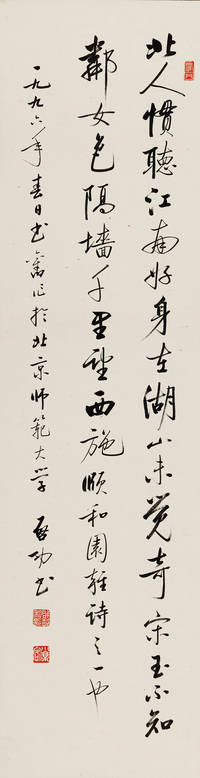 北人惯聽江南好身在湖山未覺奇宋玉不知
鄰女色隔墻千里望西施頤和園雜詩之一也
一九九六年春日书舊作於北京师範大学 启功书